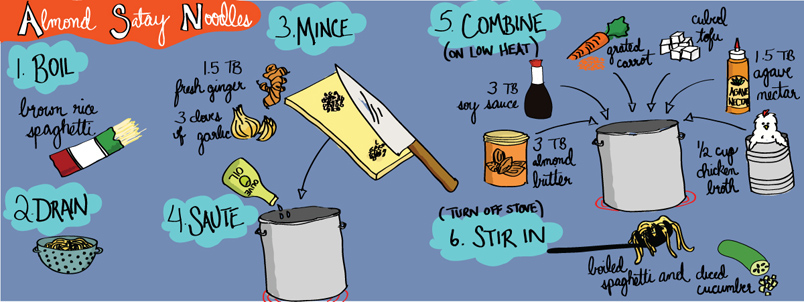 Almond Satay Noodles
1. BOIL
brown rice
spaghetti
2. DRAIN
3. MINCE
1.5 TB
fresh ginger
3 cloves
of
garlic
4. SAUTE
OLIVE
OIL
5. COMBINE
(ON LOW HEAT)
3 TB
soy sauce
grated
carrot
cubed
tofu
1.5 TB
agave
nectar
AGAVE
NECTAR
3 TB
almond
butter
1/2 cup
chicken
broth
(TURN OFF STOVE)
6. STIR IN
boiled
spaghetti and diced
cucumber